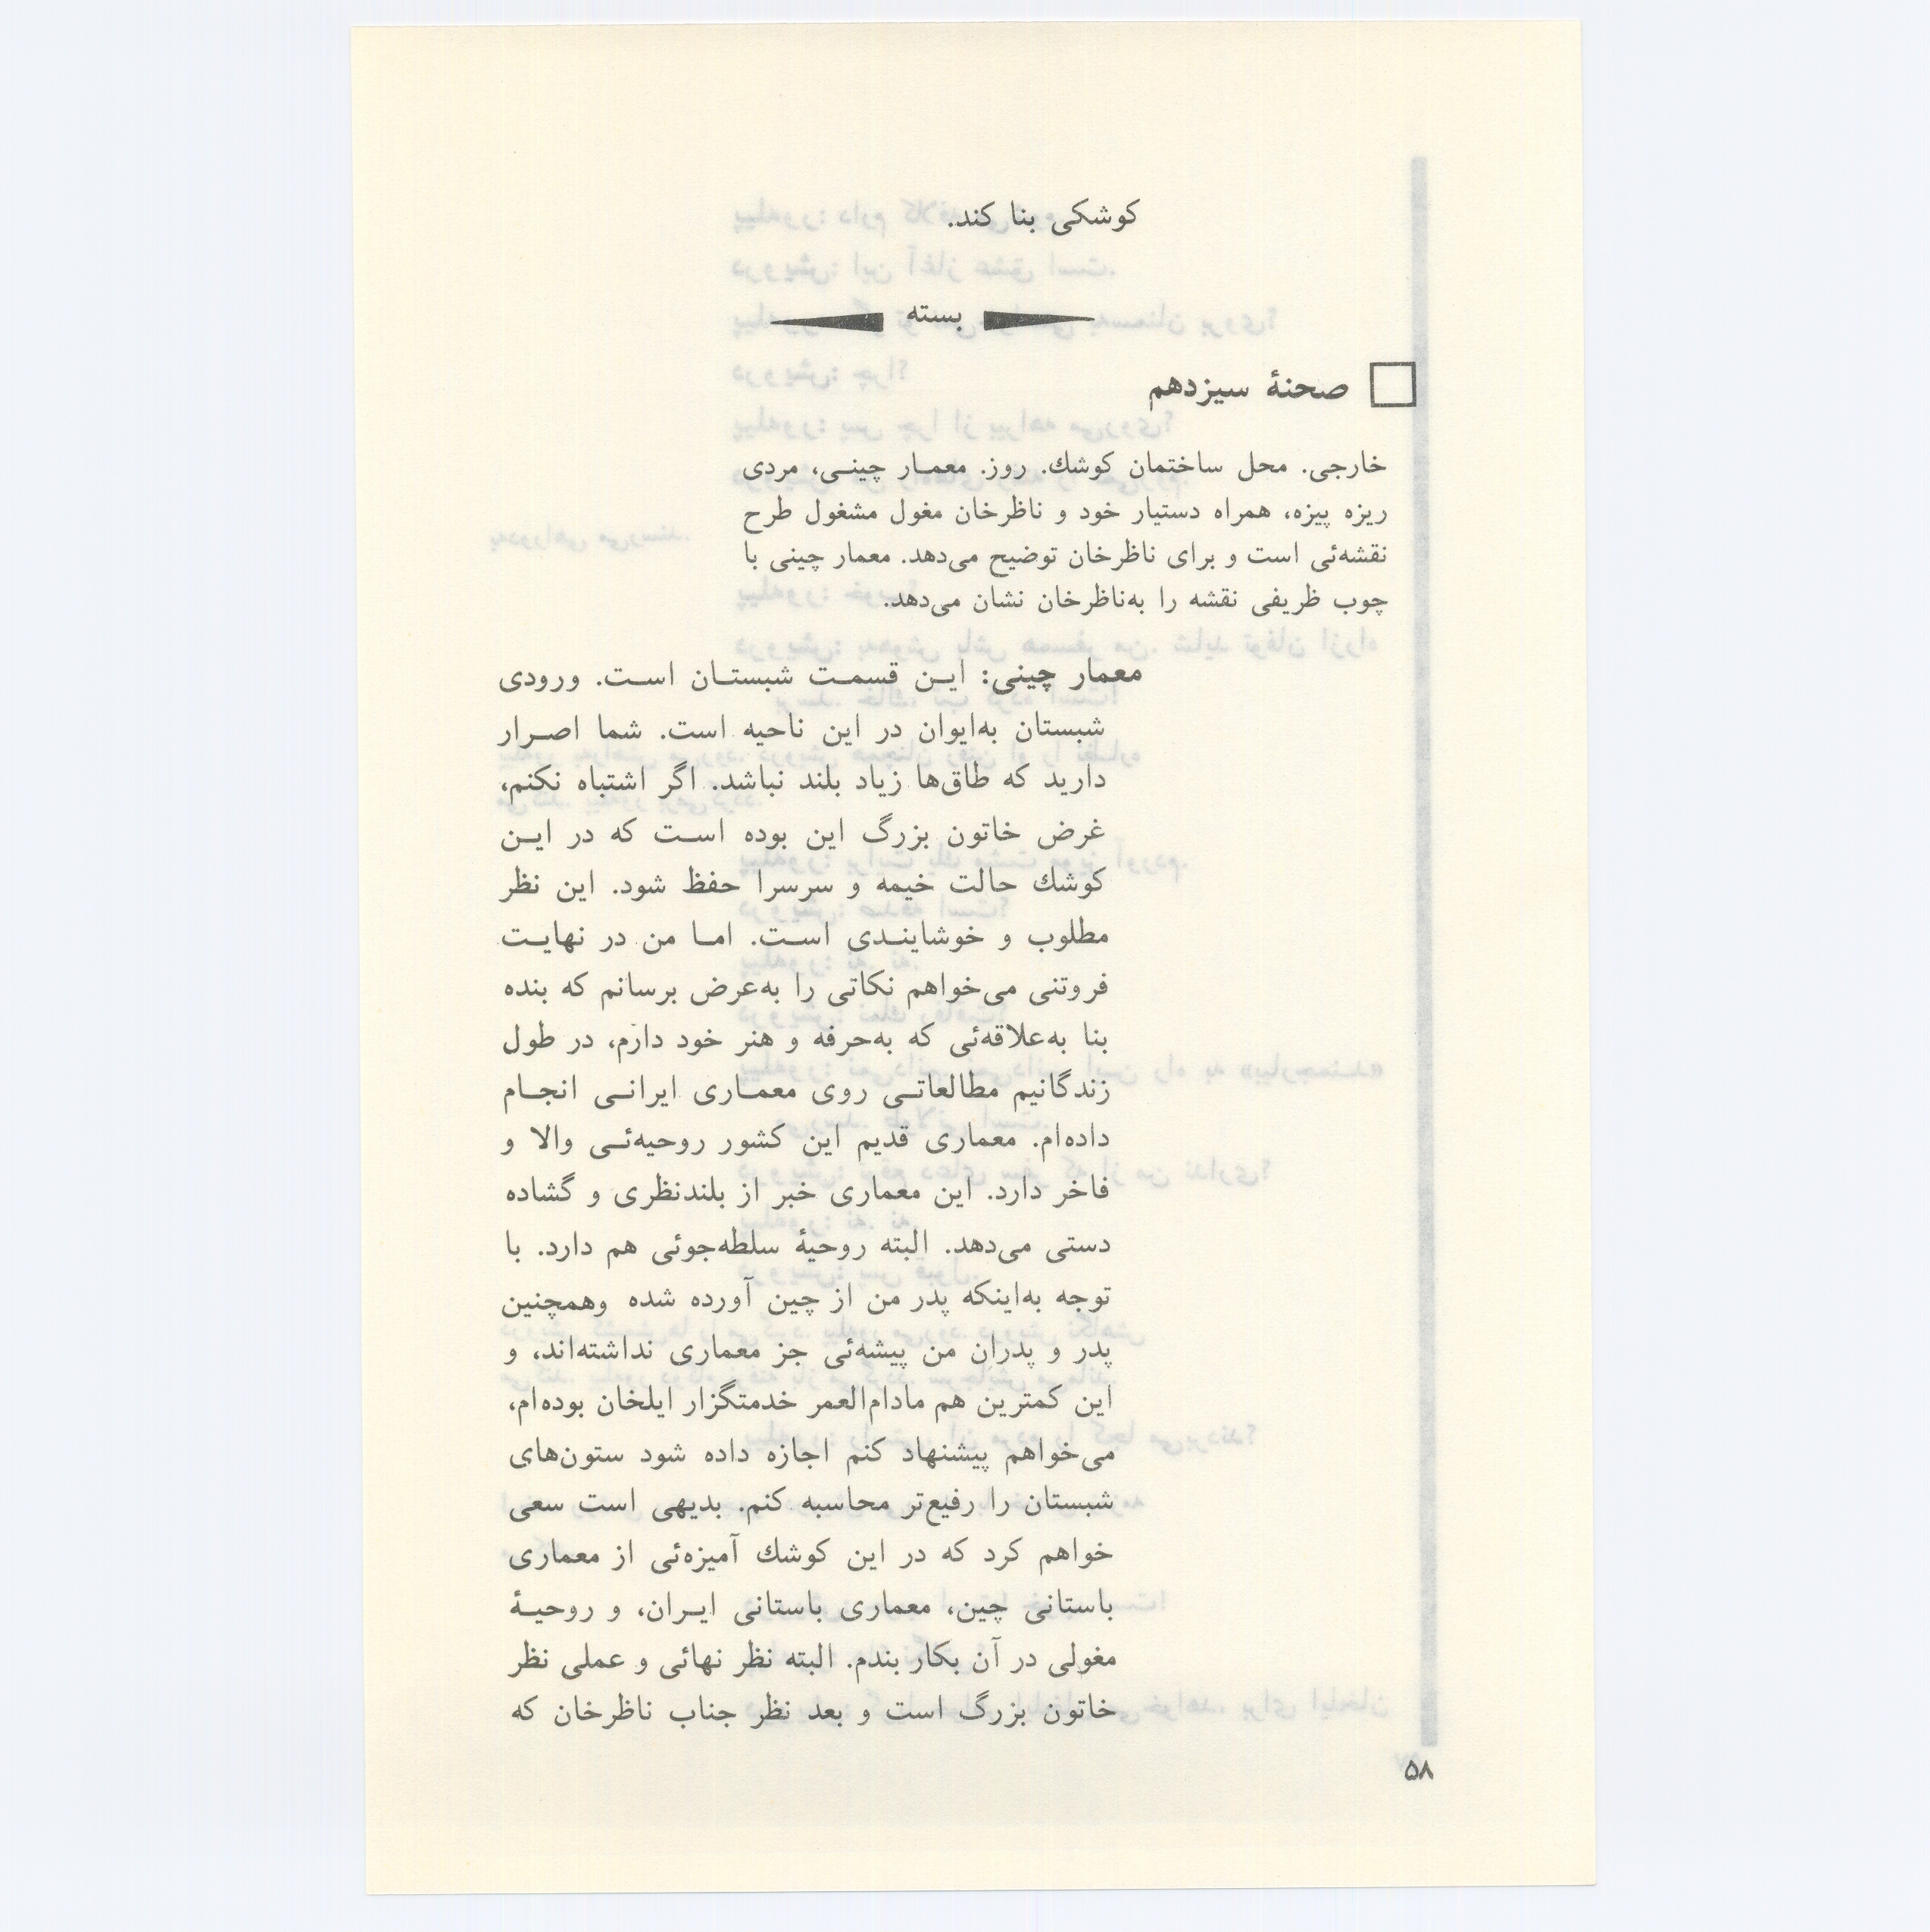 کوشکی بنا کند.
بسته
صحنهٔ سیزدهم
خارجی. محل ساختمان کوشك. روز. معمـار چینـی، مردی
ریزه پیزه، همراه دستیار خود و ناظرخان مغول مشغول طرح
نقشه‌ئی است و برای ناظرخان توضیح می‌دهد. معمار چینی با
چوب ظریفی نقشه را به‌ناظرخان نشان می‌دهد.
معمار چینی: ایـن قسمـت شبستـان اسـت. ورودی
شبستان به‌ایوان در این ناحیه است. شما اصـرار
دارید که طاق‌ها زیاد بلند نباشد. اگر اشتباه نکنم،
غرض خاتون بزرگ این بوده اسـت که در ایـن
کوشك حالت خیمه و سرسرا حفظ شود. این نظر
مطلوب و خوشاینـدی اسـت. امـا من در نهایـت
فروتنی می‌خواهم نکاتی را به‌عرض برسانم که بنده
بنا به‌علاقه‌ئی که به‌حرفه و هنر خود دارم، در طول
زندگانیم مطالعاتـی روی معمـاری ایرانـی انجـام
داده‌ام. معماری قدیم این کشور روحیه‌ئـی والا و
فاخر دارد. این معماری خبر از بلندنظری و گشاده
دستی می‌دهد. البته روحیهٔ سلطه‌جوئی هم دارد. با
توجه به‌اینکه پدر من از چین آورده شده وهمچنین
پدر و پدران من پیشه‌ئی جز معماری نداشته‌اند، و
این کمترین هم مادام‌العمر خدمتگزار ایلخان بوده‌ام،
می‌خواهم پیشنهاد کنم اجازه داده شود ستون‌های
شبستان را رفیع‌تر محاسبه کنم. بدیهی است سعی
خواهم کرد که در این کوشك آمیزه‌ئی از معماری
باستانی چین، معماری باستانی ایـران، و روحیـهٔ
مغولی در آن بکار بندم. البته نظر نهائی و عملی نظر
خاتون بزرگ است و بعد نظر جناب ناظرخان که
۵۸